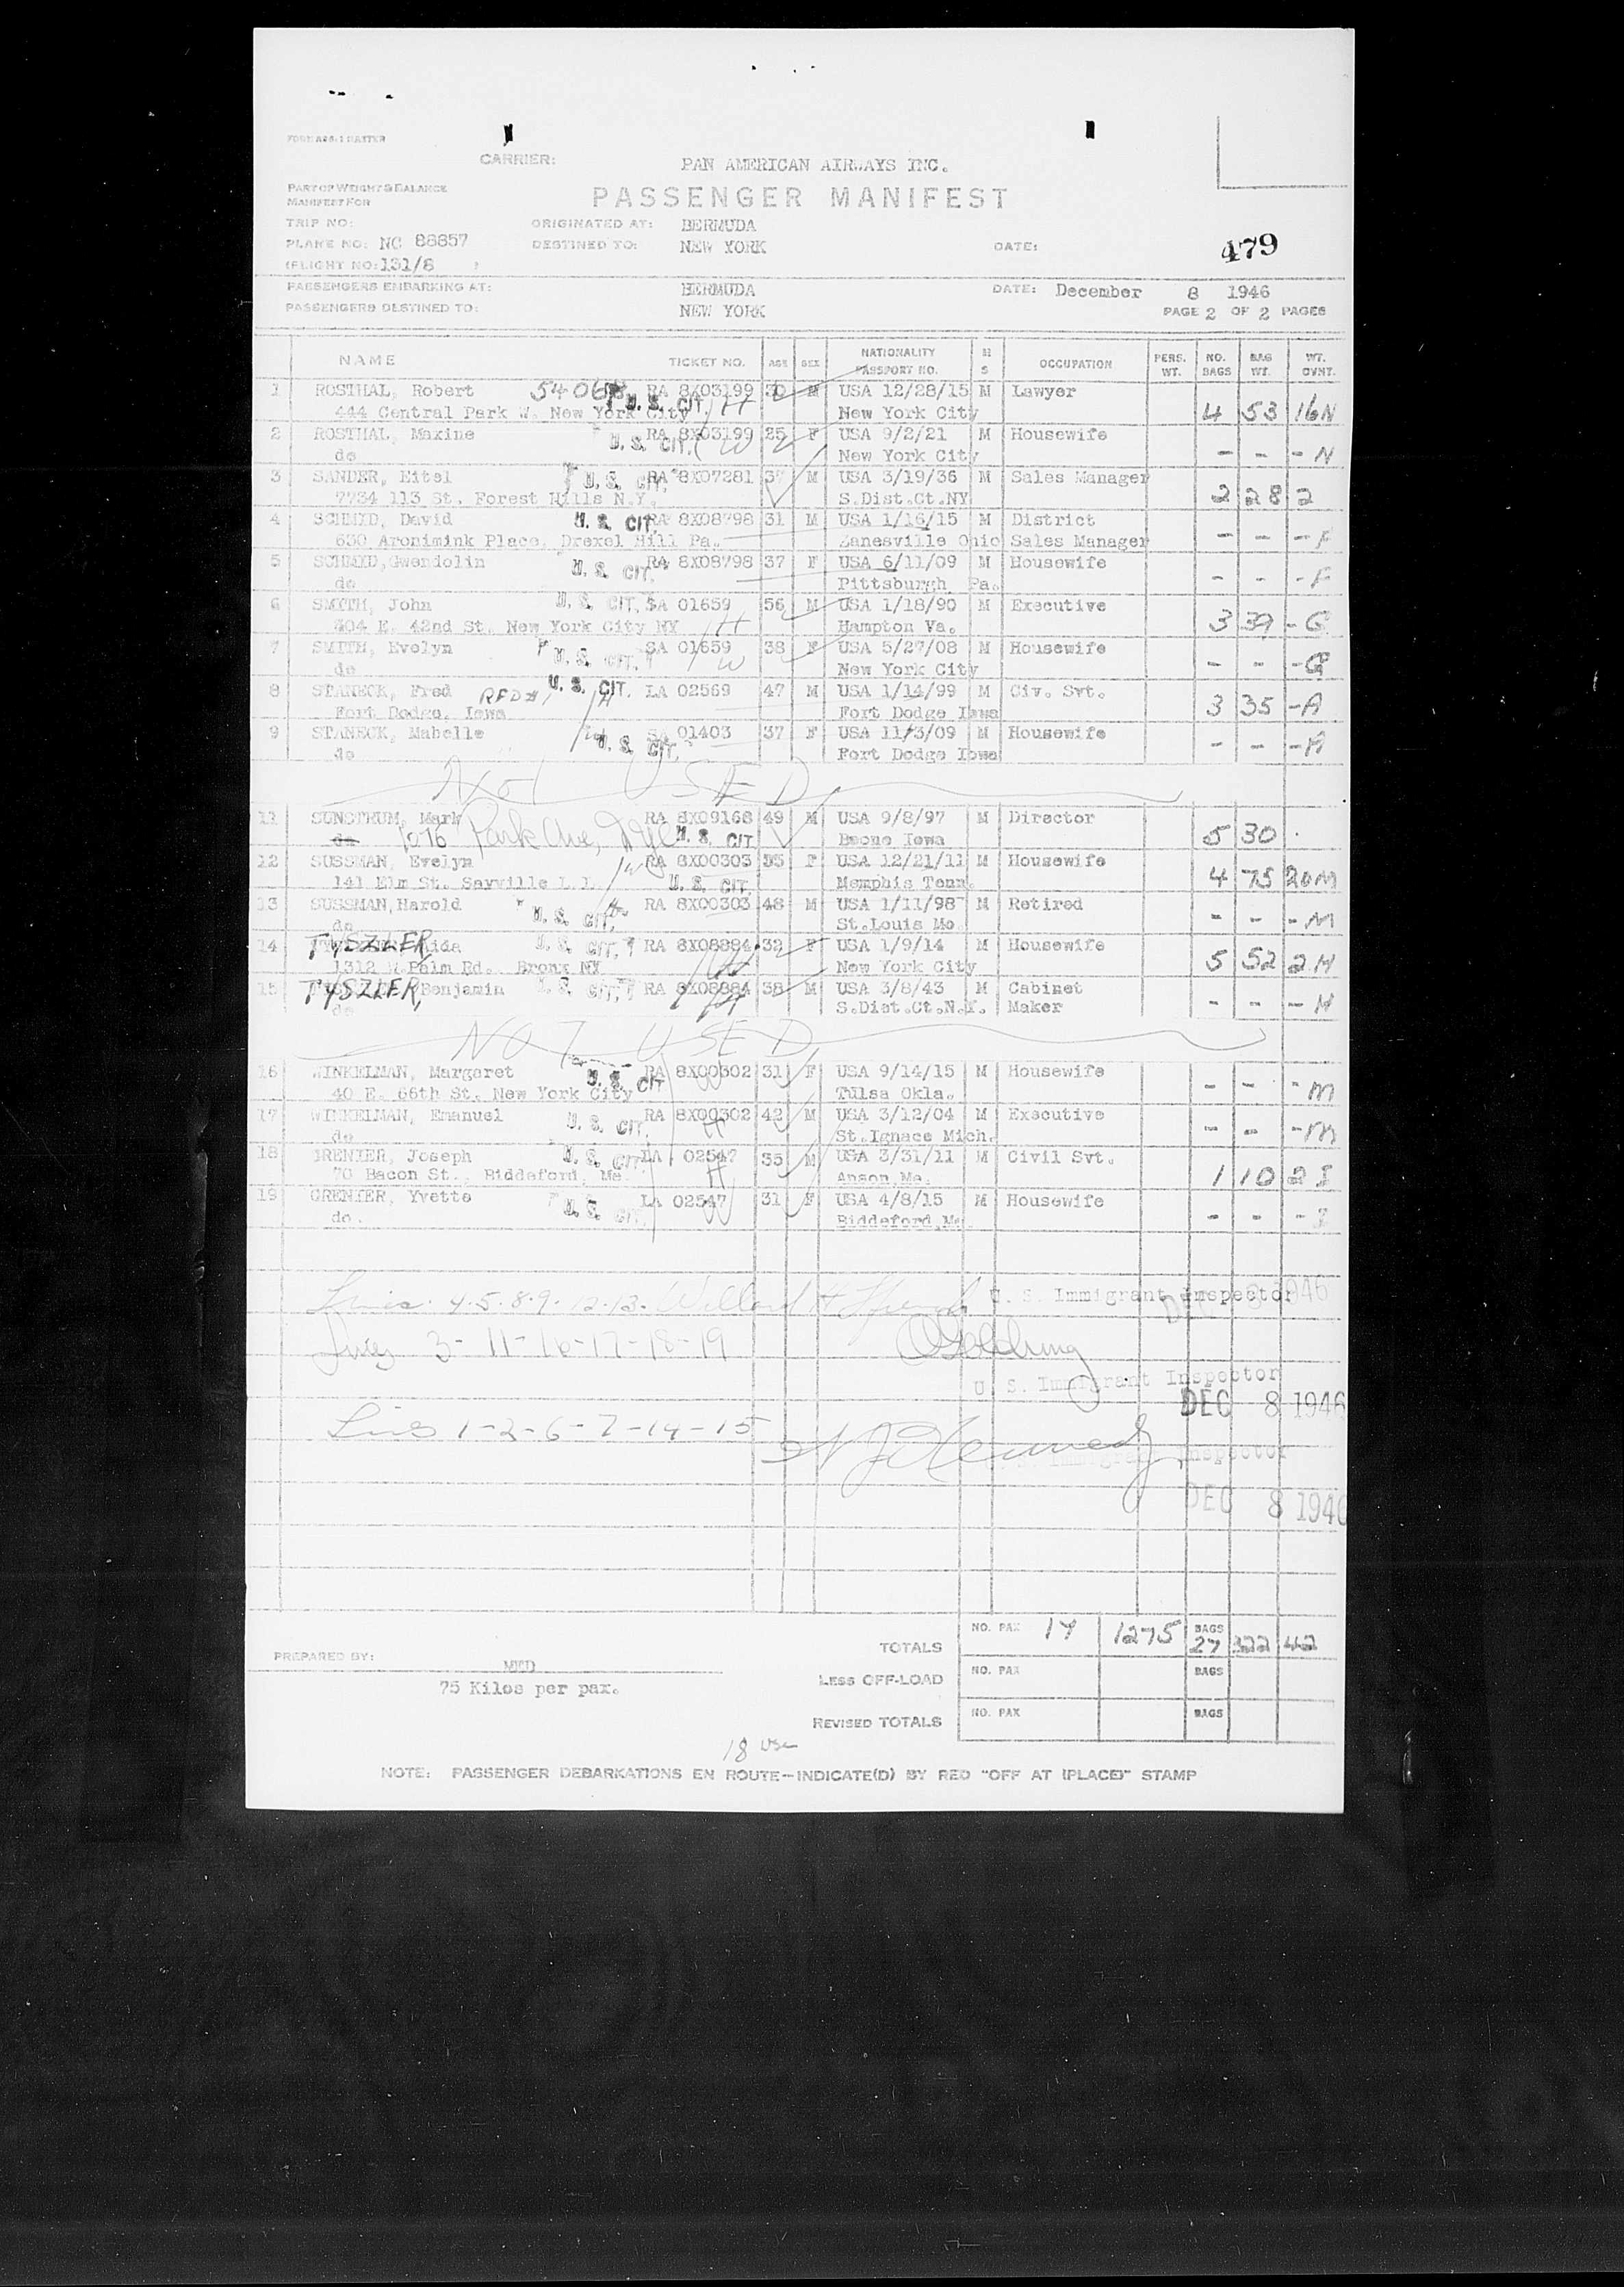 CARRIER: PAN AMERICAN AIRWAYS INC.
PART OF WEIGHT & BALANCE
MANIFEST FOR
PASSENGER MANIFEST
TRIP NO: ORIGINATED AT: BERMUDA
PLANE NO: NC 88857 DESTINED TO: NEW YORK DATE: 479
(FLIGHT NO: 131/8 )
PASSENGERS EMBARKING AT: BERMUDA DATE: December 8 1946
PASSENGERS DESTINED TO: NEW YORK PAGE 2 OF 2 PAGES
NAME TICKET NO. AGE SEX NATIONALITY PASSPORT NO. M S OCCUPATION PERS. WT. NO. BAGS BAG WT. WT. OVNT.
1 ROSTHAL, Robert RA 8X03199 30 M USA 12/28/15 M Lawyer
444 Central Park W. New York City U. S. CIT. H New York City 4 53 16N
2 ROSTHAL, Maxine RA 8X03199 25 F USA 9/2/21 M Housewife
do U. S. CIT. W New York City - - - N
3 SANDER, Eitel U. S. CIT. RA 8X07281 37 M USA 3/19/36 M Sales Manager
7734 113 St. Forest Hills N.Y. S.Dist.Ct.NY 2 28 2
4 SCHMID, David U. S. CIT. RA 8X08798 31 M USA 1/16/15 M District
630 Aronimink Place. Drexel Hill Pa. Zanesville Ohio Sales Manager - - - F
5 SCHMID, Gwendolin U. S. CIT. RA 8X08798 37 F USA 6/11/09 M Housewife
do Pittsburgh Pa. - - - F
6 SMITH, John U. S. CIT. SA 01659 56 M USA 1/18/90 M Executive
304 E. 42nd St. New York City NY H Hampton Va. 3 39 - G
7 SMITH, Evelyn U. S. CIT. SA 01659 38 F USA 5/27/08 M Housewife
do W New York City - - - G
8 STANECK, Fred RFD #1 U. S. CIT. LA 02569 47 M USA 1/14/99 M Civ. Svt.
Fort Dodge, Iowa H Fort Dodge Iowa 3 35 - A
9 STANECK, Mabelle U. S. CIT. SA 01403 37 F USA 11/3/09 M Housewife
do Fort Dodge Iowa - - - A
NOT USED
11 SUNSTRUM, Mark RA 8X09168 49 M USA 9/8/97 M Director
do 1076 Park Ave, NYC U. S. CIT. Boone Iowa 5 30
12 SUSSMAN, Evelyn W RA 8X00303 35 F USA 12/21/11 M Housewife
141 Elm St. Sayville L.I. U. S. CIT. Memphis Tenn. 4 75 20M
13 SUSSMAN, Harold U. S. CIT. RA 8X00303 48 M USA 1/11/98 M Retired
do St.Louis Mo. - - - M
14 TYSZLER, U. S. CIT. RA 8X08884 32 F USA 1/9/14 M Housewife
Bronx NY New York City 5 52 2H
15 TYSZLER, Benjamin U. S. CIT. RA 8X08884 38 M USA 3/8/43 M Cabinet
do H S.Dist.Ct.N.Y. Maker - - - H
NOT USED
16 WINKELMAN, Margaret RA 8X00302 31 F USA 9/14/15 M Housewife
40 E. 66th St. New York City U. S. CIT W Tulsa Okla. - - - M
17 WINKELMAN, Emanuel U. S. CIT. RA 8X00302 42 M USA 3/12/04 M Executive
do H St.Ignace Mich. - - - M
18 GRENIER, Joseph U. S. CIT. LA 02547 35 M USA 3/31/11 M Civil Svt.
70 Bacon St., Biddeford, Me. H Anson Me. 1 10 2 I
19 GRENIER, Yvette U. S. CIT. LA 02547 31 F USA 4/8/15 M Housewife
do. W Biddeford, Me. - - - I
Lines 4.5.8.9.12.13. U. S. Immigrant Inspector DEC 8 1946
Lines 3-11-16-17-18-19
U. S. Immigrant Inspector
DEC 8 1946
Lines 1-2-6-7-14-15
Immigrant Inspector
DEC 8 1946
TOTALS NO. PAX 17 1275 BAGS 27 322 42
PREPARED BY: MED
LESS OFF-LOAD NO. PAX BAGS
75 Kilos per pax.
REVISED TOTALS NO. PAX BAGS
18 USC
NOTE: PASSENGER DEBARKATIONS EN ROUTE—INDICATE(D) BY RED "OFF AT (PLACE)" STAMP